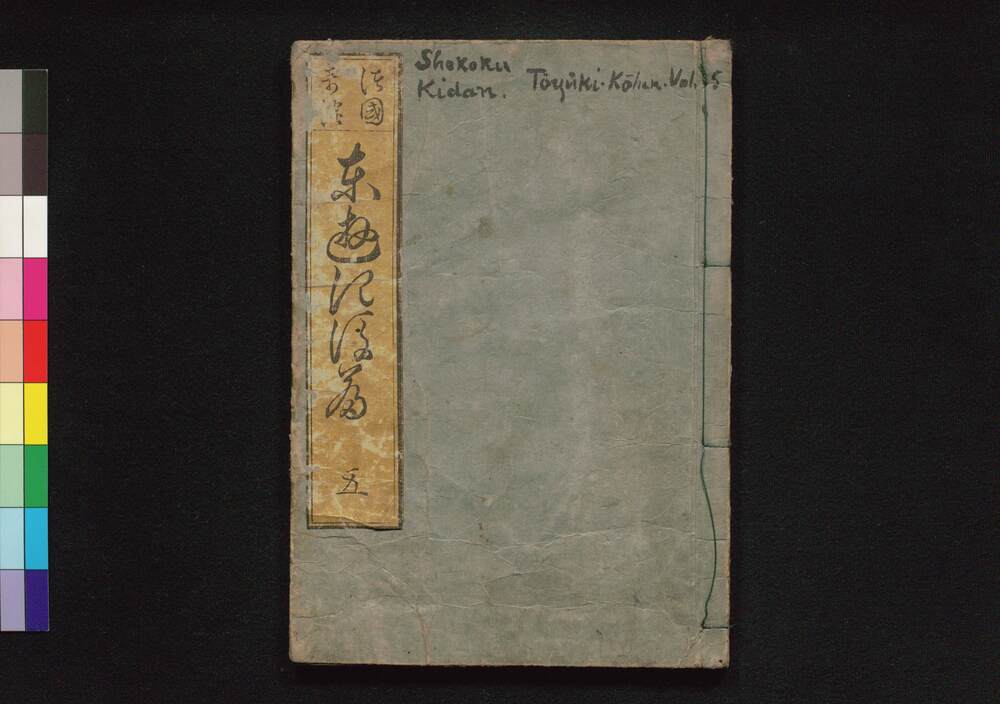 諸國
奇談
东遊記後篇
五
Shokoku
Kidan.
Tōyūki. Kōhen. Vol. 5